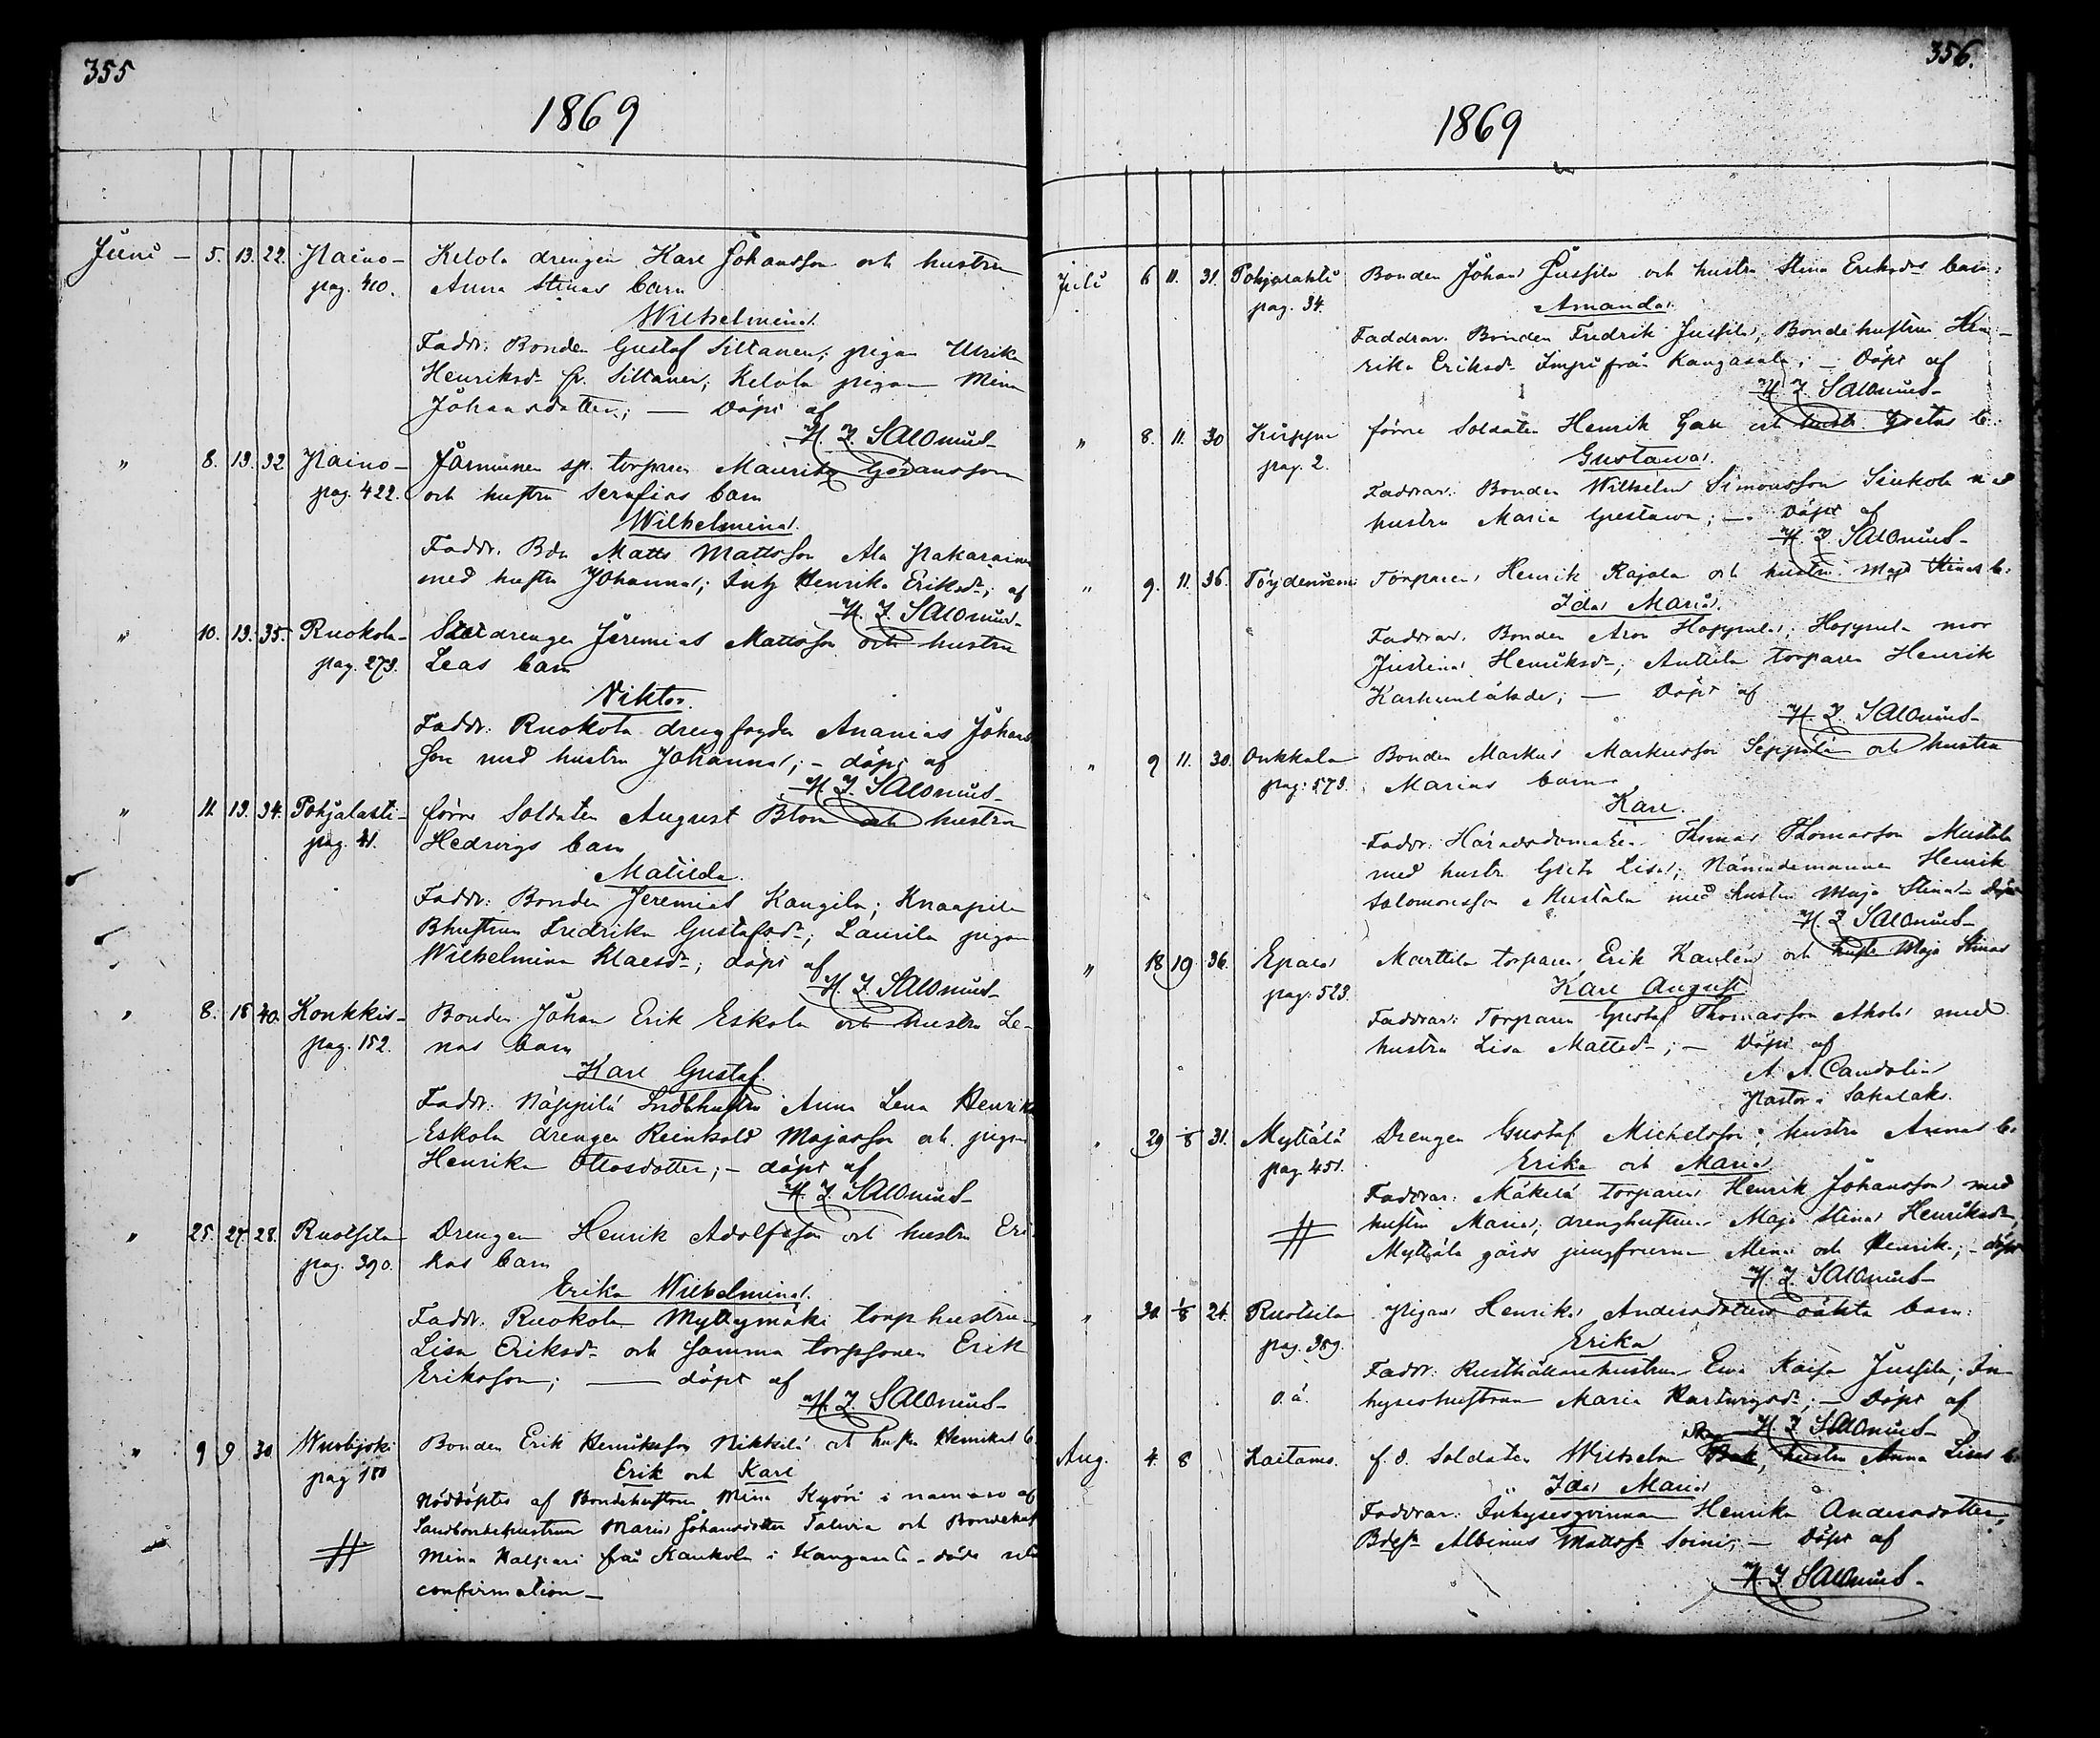 355
1869
Juni — 5. 13. 22. Paino- Kelola drengen Karl Johansson och hustru
pag. 410. Anna Stinas barn
Wilhelmina.
Faddr: Bonden Gustaf Siltanen; pigan Ulrika
Henriksd. fr. Siltanen; Kelola pigan Mina
Johansdotter; — döpt af
H. J. Salonius
" 8. 13. 32 Paino- torparen Maurits Göransson
pag. 422. och hustru Serafias barn
Wilhelmina.
Faddr. Bdn Matts Mattsson Ala Pakarainen
med hustru Johanna; Henrika Eriksdr; af
H. J. Salonius
" 10. 13. 35. Ruokola- drengen Jeremias Mattsson och hustru
pag. 273. Leas barn
Viktor.
Faddr. Ruokola drengfogden Ananias Johans
son med hustru Johanna; - döpt af
H. J. Salonius
" 11. 13. 34. Pohjalahti- förre Soldaten August Blom och hustru
pag. 41. Hedvigs barn
Matilda.
Faddr: Bonden Jeremias Kangila; Knaapila
Bhustrun Fredrika Gustafsdr; Laurila pigan
Wilhelmina Klaesdr; döpt af
H. J. Salonius
" 8. 18 40. Konkkis- Bonden Johan Erik Eskola och hustru Le-
pag. 152. nas barn
Karl Gustaf.
Faddr. Näppilä Anna Lena Henriks
Eskola drengen Reinhold Majasson och pigan
Henrika Ottosdotter; - döpt af
H. J. Salonius
" 25. 27. 28. Ruotsila Drengen Henrik Adolfsson och hustru Eri
pag. 390. kas barn
Erika Wilhelmina.
Faddr. Ruokola Myttymäki torphustrun
Lisa Eriksdr och samma torpsonen Erik
Eriksson; — döpt af
H. J. Salonius
" 9 9. 30. Bonden Erik Henriksson Nikkilä och hustru Henrikas b.
pag 180 Erik och Karl
Nöddöptes af Bondehustrun Mina i namnaro af
Landbondehustrun Maria Johansdotter Talvia och Bondehust
# Mina från Kaukola i Kangasala - döda
confirmation —
356.
1869
Juli 6 11. 31. Pohjalahti Bonden Johan Jussila och hustru Stina Eriksdrs barn:
pag. 34. Amanda.
Faddrar. Bonden Fredrik Jussila, Bondehustrun Hen-
rika Eriksdr från Kangasala; — Döpt af
H. J. Salonius
" 8. 11. 30 Kirppu förre Soldaten Henrik och hustr. Gretas b:
pag. 2. Gustawa.
Faddrar: Bonden Wilhelm Simonsson Sinkola med
hustru Maria Gustawa; — Döpt af
H. J. Salonius
" 9. 11. 36. Töydenvuori Torparen Henrik Rajala och hustru Maja Stinas b.
Ida Maria.
Faddrar. Bonden Aron Hoppula; Hoppula mor
Justina Henriksdr; Anttila torparen Henrik
— Döpt af
H. J. Salonius
" 9 11. 30. Onkkala Bonden Markus Markusson Seppälä och hustru
pag. 573. Marias barn
Karl.
Faddr: Häradsdomaren Thomas Thomasson Mustala
med hustr. Greta Lisa; Nämndemannen Henrik
Salomonsson Mustala med hustru Maja Stina - Döpt
H. J. Salonius
" 18 19 36. Epaa Marttila torparen Erik Kaulén och hustr. Maja Stinas
pag. 523. Karl August
Faddrar: Torparen Gustaf Thomasson Ahola med
hustru Lisa Mattsdr; — Döpt af
A. A. Candolin
Pastor i Sahalaks.
" 29 1/8 31. Myttälä Drengen Gustaf Michelsson, hustru Annas b.
pag. 451. Erika och Maria
Faddrar: Mäkelä torparen Henrik Johansson med
# hustru Maria; drenghustrun Maja Stina Henriksdr,
Myttälä gårds jungfrurna Mina och Henrika; - döpt
H. J. Salonius
" 30. 1/8 24. Ruotsila Pigan Henrika Andersdotters oäkta barn:
pag. 389. Erika
Faddr: Rusthållarehustrun Eva Kaisa Jussila, In-
o. ä. hyseshustrun Maria Hartwigsdr; — Döpt af
H. J. Salonius
Aug. 4. 8 Haitamo. f. d. Soldaten Wilhelm hustru Anna Lisas b.
Ida Maria
Faddrar: Inhysesqvinnan Henrika Andersdotter,
Albinus Mattss. Soini; — Döpt af
H. J. Salonius